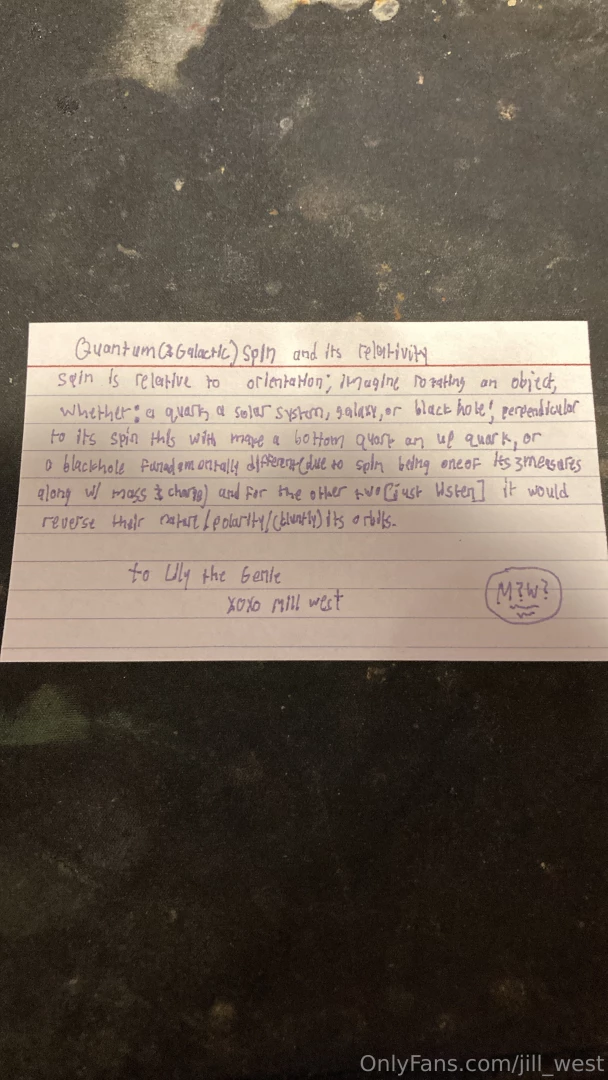 Quantum(& Galactic) Spin and its relativity
Spin is relative to orientation; imagine rotating an object,
whether: a quark, a solar system, galaxy, or black hole; perpendicular
to its spin this with make a bottom quark an up quark, or
a blackhole fundamentally different(due to spin being one of its 3 measures
along w/ mass & charge) and for the other two [just listen] it would
reverse their nature/polarity/(bluntly) its orbits.
to Lily the Genie
xoxo Mill west
M?W?
OnlyFans.com/jill_west